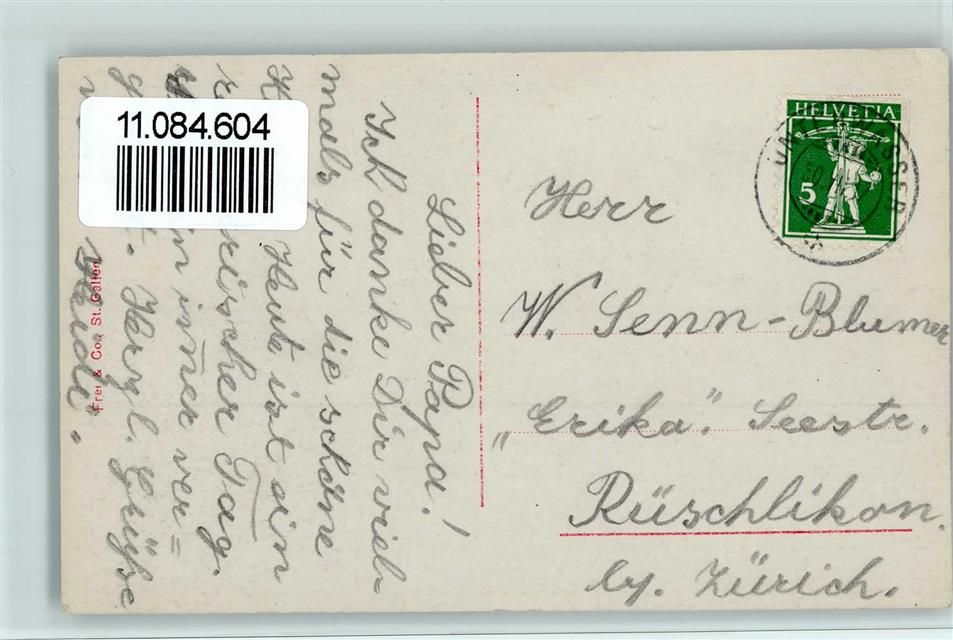 11.084.604
Lieber Papa!
Ich danke Dir viel-
mals für die schöne
Heute ist ein
rischer Tag.
in im̄er ver=
Herzl. Grüsse
Frei & Co., St. Gallen
HELVETIA
5
Herr
W. Senn-Blumer
„Erika". Seestr.
Rüschlikon.
by. Zürich.